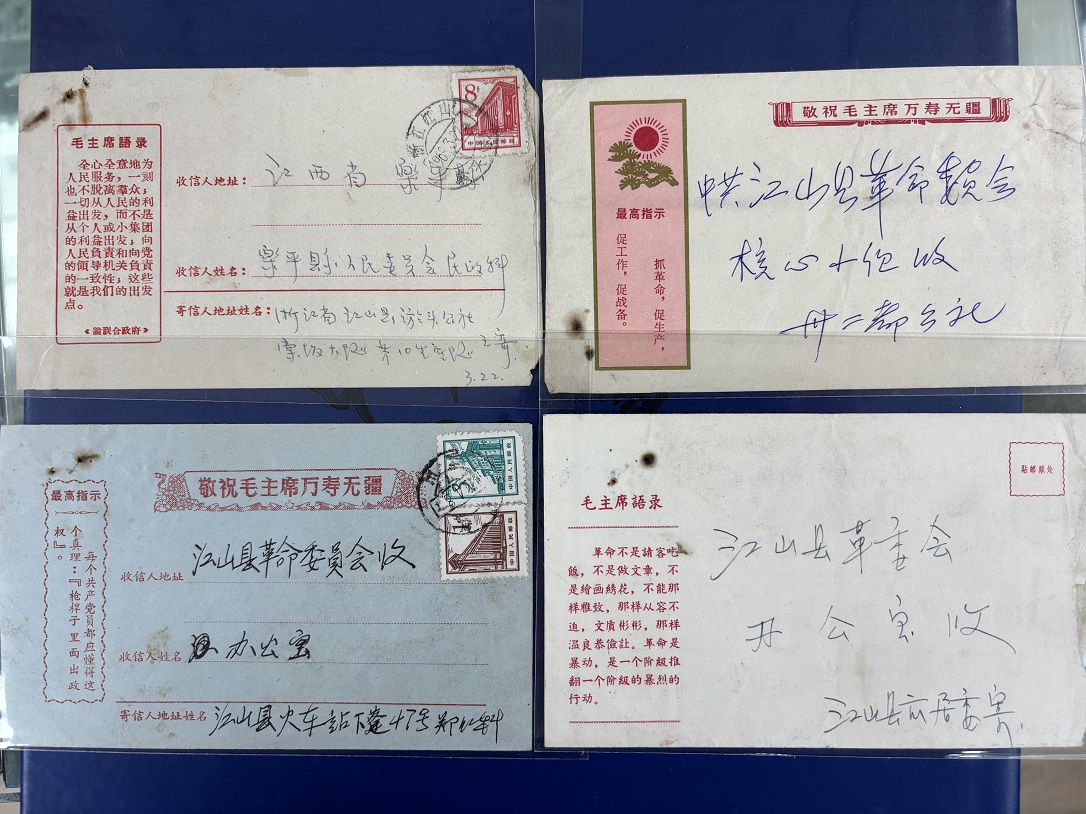 毛主席語录
全心全意地为
人民服务，一刻
也不脫离羣众；
一切从人民的利
益出发，而不是
从个人或小集团
的利益出发；向
人民負責和向党
的领导机关負責
的一致性；这些
就是我们的出发
点。
《論联合政府》
8分
中国人民邮政
收信人地址：江西省 樂平县
收信人姓名：樂平縣人民委員会民政科
寄信人地址姓名：浙江省江山县
大队 第10生产队
3.22.
敬祝毛主席万寿无疆
最高指示
抓革命，促生产，
促工作，促战备。
中共江山县革命委員会
核心小组收
廿二都公社
敬祝毛主席万寿无疆
最高指示
每个共产党員都应懂得这
个真理：『枪桿子里面出政
权』。
中国人民邮政
中国人民邮政
收信人地址 江山县革命委員会收
收信人姓名 办公室
寄信人地址姓名 江山县火车站下蓬47号
毛主席語录
革命不是請客吃
飯，不是做文章，不
是繪画綉花，不能那
样雅致，那样从容不
迫，文质彬彬，那样
温良恭儉让。革命是
暴动，是一个阶級推
翻一个阶級的暴烈的
行动。
貼邮票处
江山县革委会
办公室收
江山县 居委寄